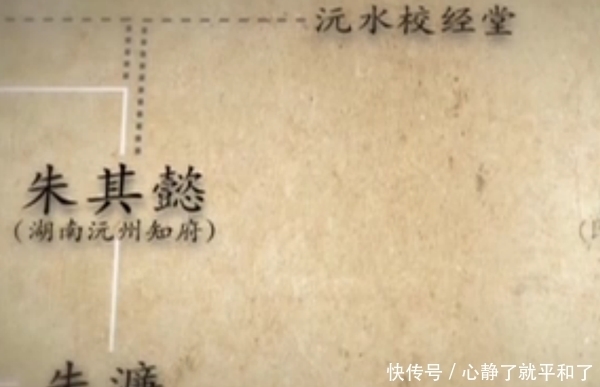 沅水校经堂
朱其懿
(湖南沅州知府)
朱濂
快传号 / 心静了就平和了